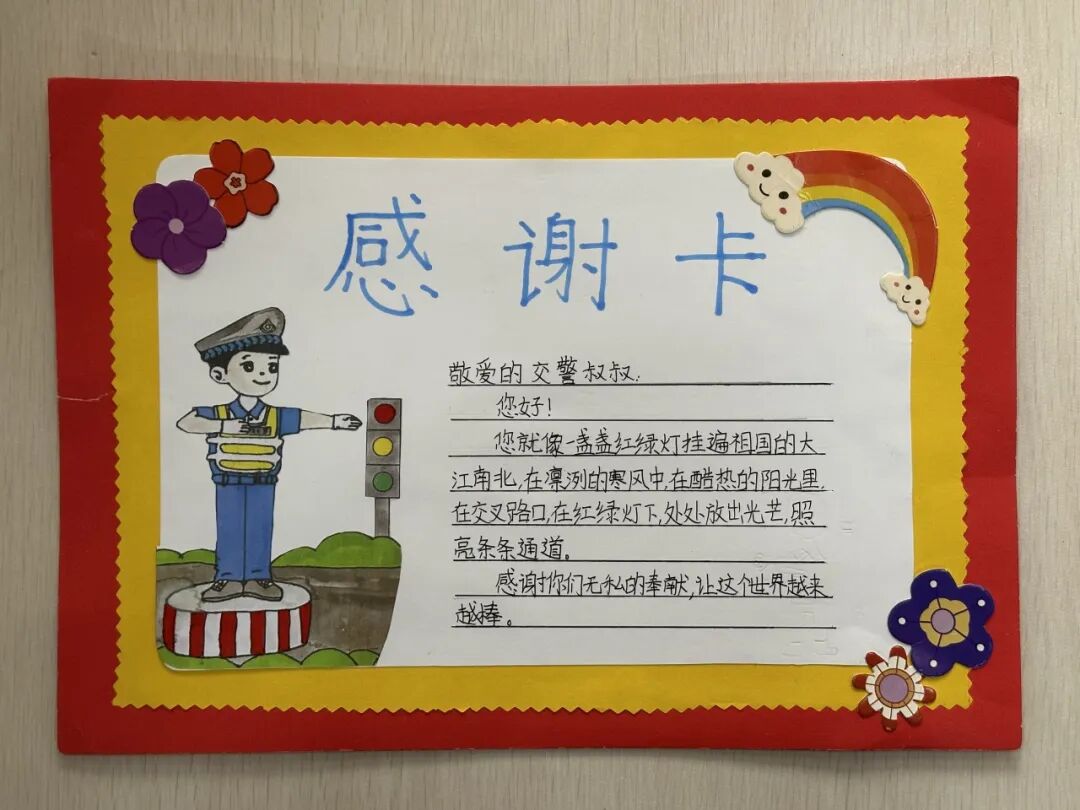 感谢卡
敬爱的交警叔叔:
您好!
您就像一盏盏红绿灯挂遍祖国的大
江南北,在凛冽的寒风中,在酷热的阳光里,
在交叉路口,在红绿灯下,处处放出光芒,照
亮条条通道。
感谢你们无私的奉献,让这个世界越来
越棒。